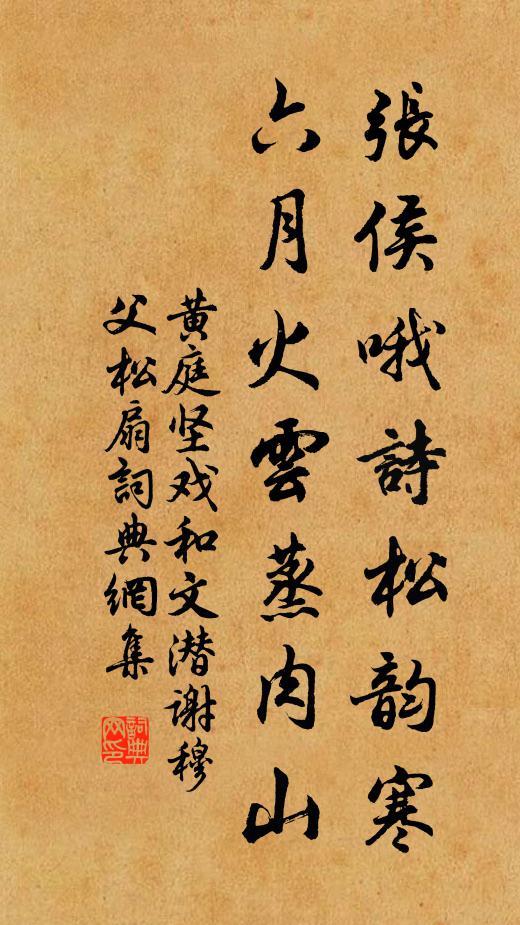 張侯哦詩松韵寒
六月火雲蒸肉山
黄庭坚戏和文潜谢穆
父松扇詞典網集
詞典
网印